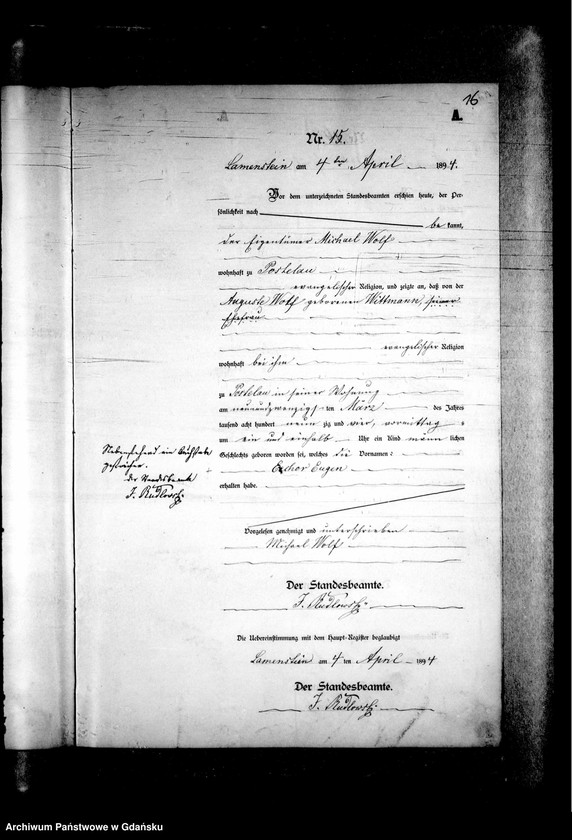 16
A.
Nr. 15.
Lamenstein am 4ten April 1894.
Vor dem unterzeichneten Standesbeamten erschien heute, der Per-
sönlichkeit nach
be kannt,
der Eigentümer Michael Wolf
wohnhaft zu Postelau
evangelischer Religion, und zeigte an, daß von der
Auguste Wolf geborenen Wittmann, seiner
Ehefrau
evangelischer Religion
wohnhaft bei ihm
zu Postelau in seiner Wohnung
am neunundzwanzigsten März des Jahres
tausend acht hundert neunzig und vier, vormittags
um ein und einhalb Uhr ein Kind männlichen
Geschlechts geboren worden sei, welches die Vornamen
Eugen
erhalten habe.
Nebenstehend ein Buchstabe
gestrichen.
Der Standesbeamte
J. Rudlowski
Vorgelesen genehmigt und unterschrieben
Michael Wolf
Der Standesbeamte.
J. Rudlowski
Die Uebereinstimmung mit dem Haupt-Register beglaubigt
Lamenstein am 4 ten April 1894
Der Standesbeamte.
J. Rudlowski
Archiwum Państwowe w Gdańsku